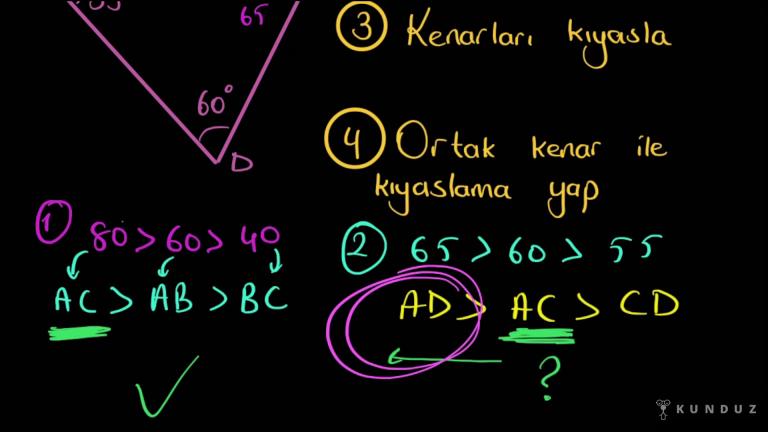 65
3 Kenarları kıyasla
60°
D
4 Ortak kenar ile
kıyaslama yap
1 80 > 60 > 40
AC > AB > BC
2 65 > 60 > 55
AD > AC > CD
?
KUNDUZ